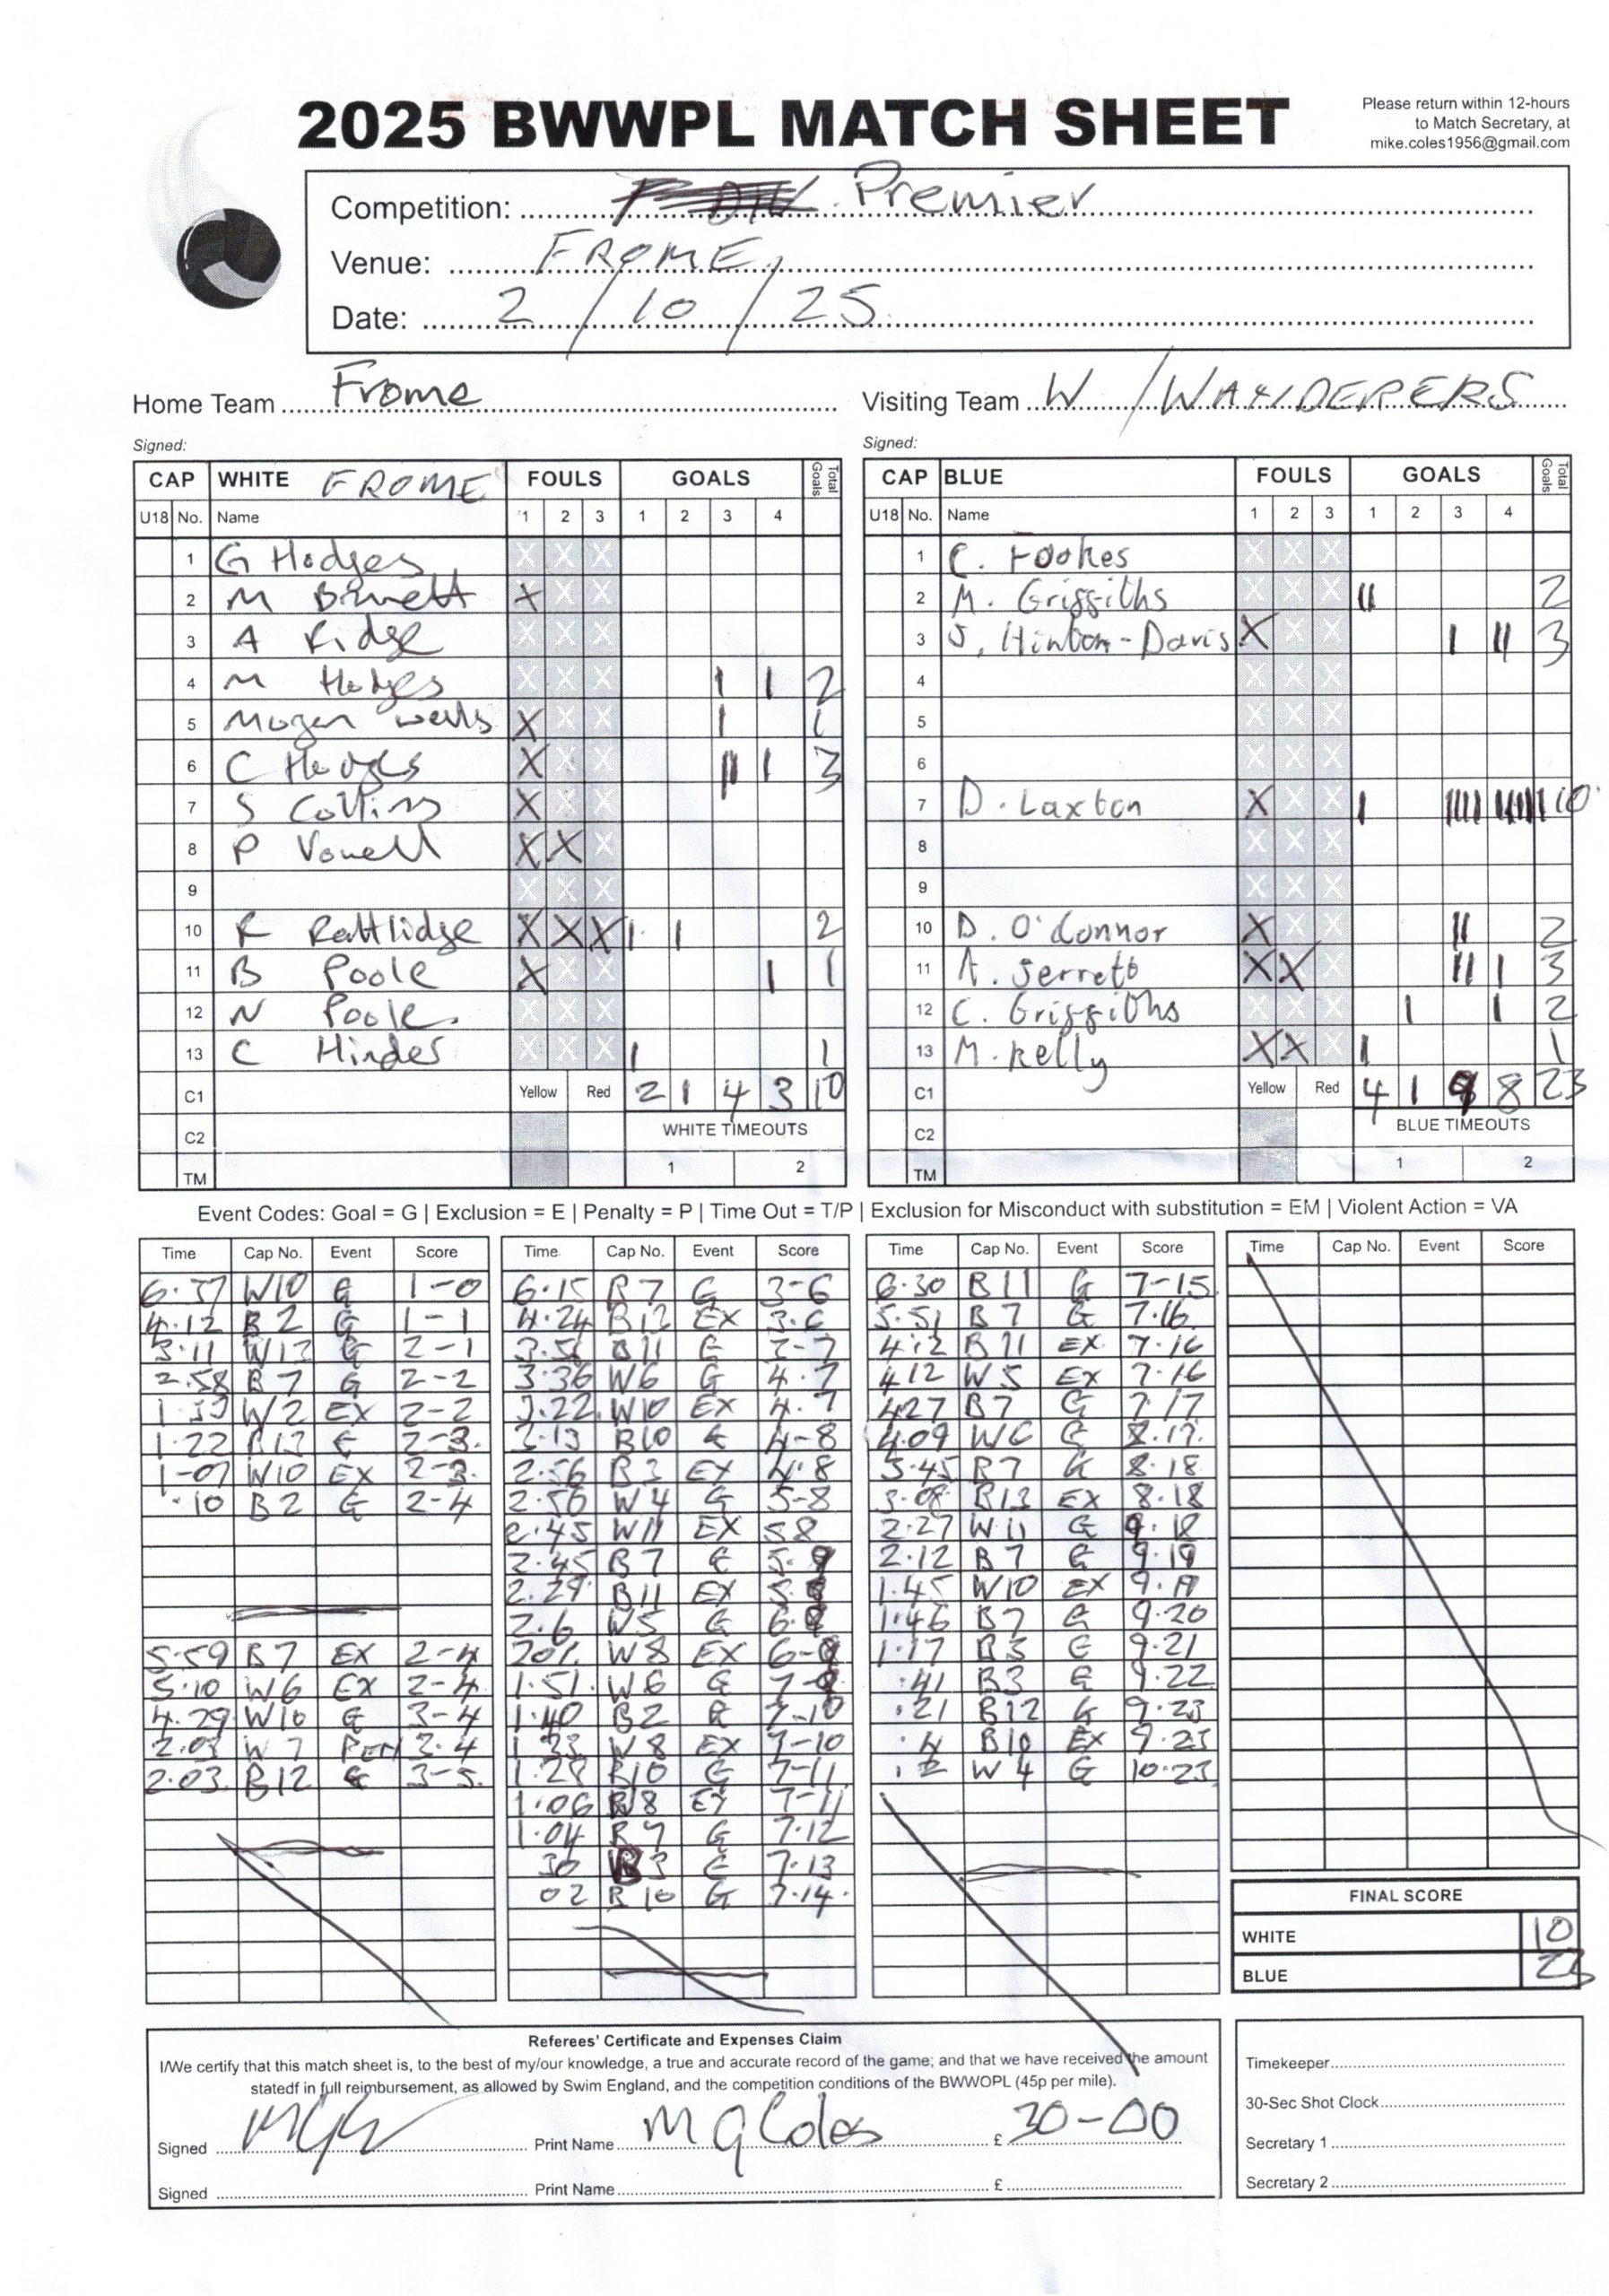 2025 BWWPL MATCH SHEET
Please return within 12-hours
to Match Secretary, at
mike.coles1956@gmail.com
Competition: Premier
Venue: FROME
Date: 2/10/25
Home Team Frome
Visiting Team W/WANDERERS
Signed:
Signed:
CAP WHITE FROME FOULS GOALS Total Goals
U18 No. Name 1 2 3 1 2 3 4
1 G Hodges
2 M Bennett X
3 A Ridge
4 M Hodges 1 1 2
5 Mogan wells X 1 1
6 C Hodges X 11 1 3
7 S Collins X
8 P Vowell X X
9
10 R Rattlidge X X X 1 1 2
11 B Poole X 1 1
12 N Poole
13 C Hindes 1 1
C1 Yellow Red 2 1 4 3 10
C2 WHITE TIMEOUTS
TM 1 2
CAP BLUE FOULS GOALS Total Goals
U18 No. Name 1 2 3 1 2 3 4
1 C. Fookes
2 M. Griffiths 11 2
3 J. Hinton-Davis X 1 11 3
4
5
6
7 D. Laxton X 1 1111 11111 10
8
9
10 D. O'Connor X 11 2
11 A. Jerrett X X 11 1 3
12 C. Griffiths 1 1 2
13 M. Kelly X X 1 1
C1 Yellow Red 4 1 9 8 23
C2 BLUE TIMEOUTS
TM 1 2
Event Codes: Goal = G | Exclusion = E | Penalty = P | Time Out = T/P | Exclusion for Misconduct with substitution = EM | Violent Action = VA
Time Cap No. Event Score
6.37 W10 G 1-0
4.12 B2 G 1-1
3.11 W13 G 2-1
2.58 B7 G 2-2
1.39 W2 EX 2-2
1.22 B13 G 2-3.
1-07 W10 EX 2-3.
.10 B2 G 2-4
5.59 B7 EX 2-4
5.10 W6 EX 2-4
4.29 W10 G 3-4
2.03 W7 PEN 3.4
2.03. B12 G 3-5.
Time Cap No. Event Score
6.15 B7 G 3-6
4.24 B13 EX 3.6
3.56 B11 G 3-7
3.36 W6 G 4.7
3.22. W10 EX 4.7
3.13 B10 G 4-8
2.56 B3 EX 4.8
2.56 W4 G 5-8
2.45 W11 EX 58
2.45 B7 G 5.9
2.29 B11 EX 5.9
2.6 W5 G 6.9
W8 EX 6-9
1.51. W6 G 7-9
1.40 B2 G 7-10
1.33 W8 EX 7-10
1.28 B10 G 7-11
1.06 W8 EX 7-11
1.04 B7 G 7.12
30 B3 G 7.13
02 B10 G 7.14.
Time Cap No. Event Score
6.30 B11 G 7-15
5.51 B7 G 7.16
4.12 B11 EX 7.16
412 W5 EX 7.16
427 B7 G 7.17
4.09 W6 G 8.17.
3.45 B7 G 8.18
3.08 B13 EX 8.18
2.27 W11 G 9.18
2.12 B7 G 9.19
1.45 W10 EX 9.19
1.46 B7 G 9.20
1.17 B3 G 9.21
.41 B3 G 9.22
.21 B12 G 9.23
.4 B10 EX 9.23
.2 W4 G 10.23
Time Cap No. Event Score
FINAL SCORE
WHITE 10
BLUE 23
Referees' Certificate and Expenses Claim
I/We certify that this match sheet is, to the best of my/our knowledge, a true and accurate record of the game; and that we have received the amount
statedf in full reimbursement, as allowed by Swim England, and the competition conditions of the BWWOPL (45p per mile).
Signed Print Name M G Coles £ 30-00
Signed Print Name £
Timekeeper
30-Sec Shot Clock
Secretary 1
Secretary 2